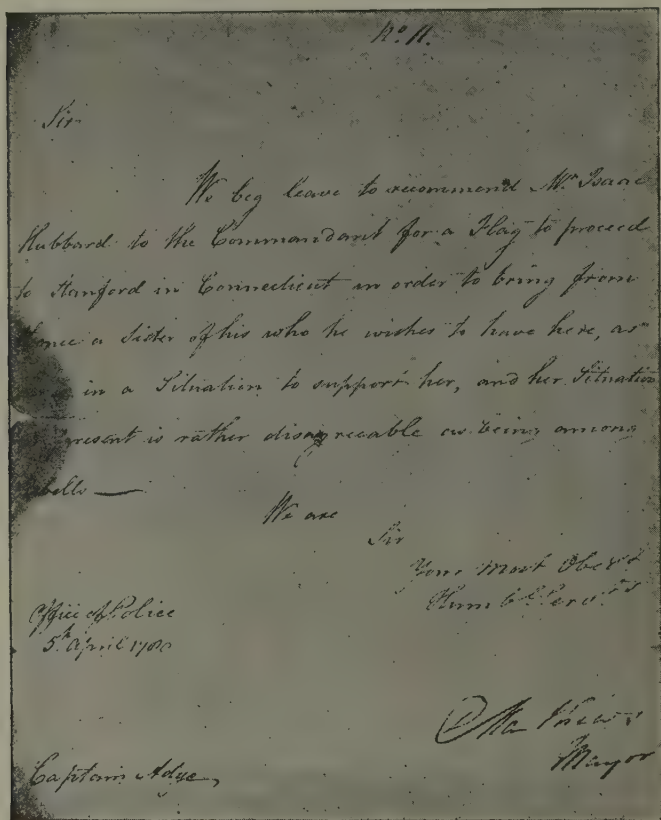 No. 11.
Sir
We beg leave to recommend Mr. Isaac
Hubbard to the Commandant for a Flag to proceed
to Stanford in Connecticut in order to bring from
thence a Sister of his who he wishes to have here, as
in a Situation to support her, and her Situation
present is rather disagreeable as being among
Rebells —
We are
Sir
Your Most Obed.t
Humble Serv.ts
Office of Police
5th April 1780
D Mathews
Mayor
Captain Adye,